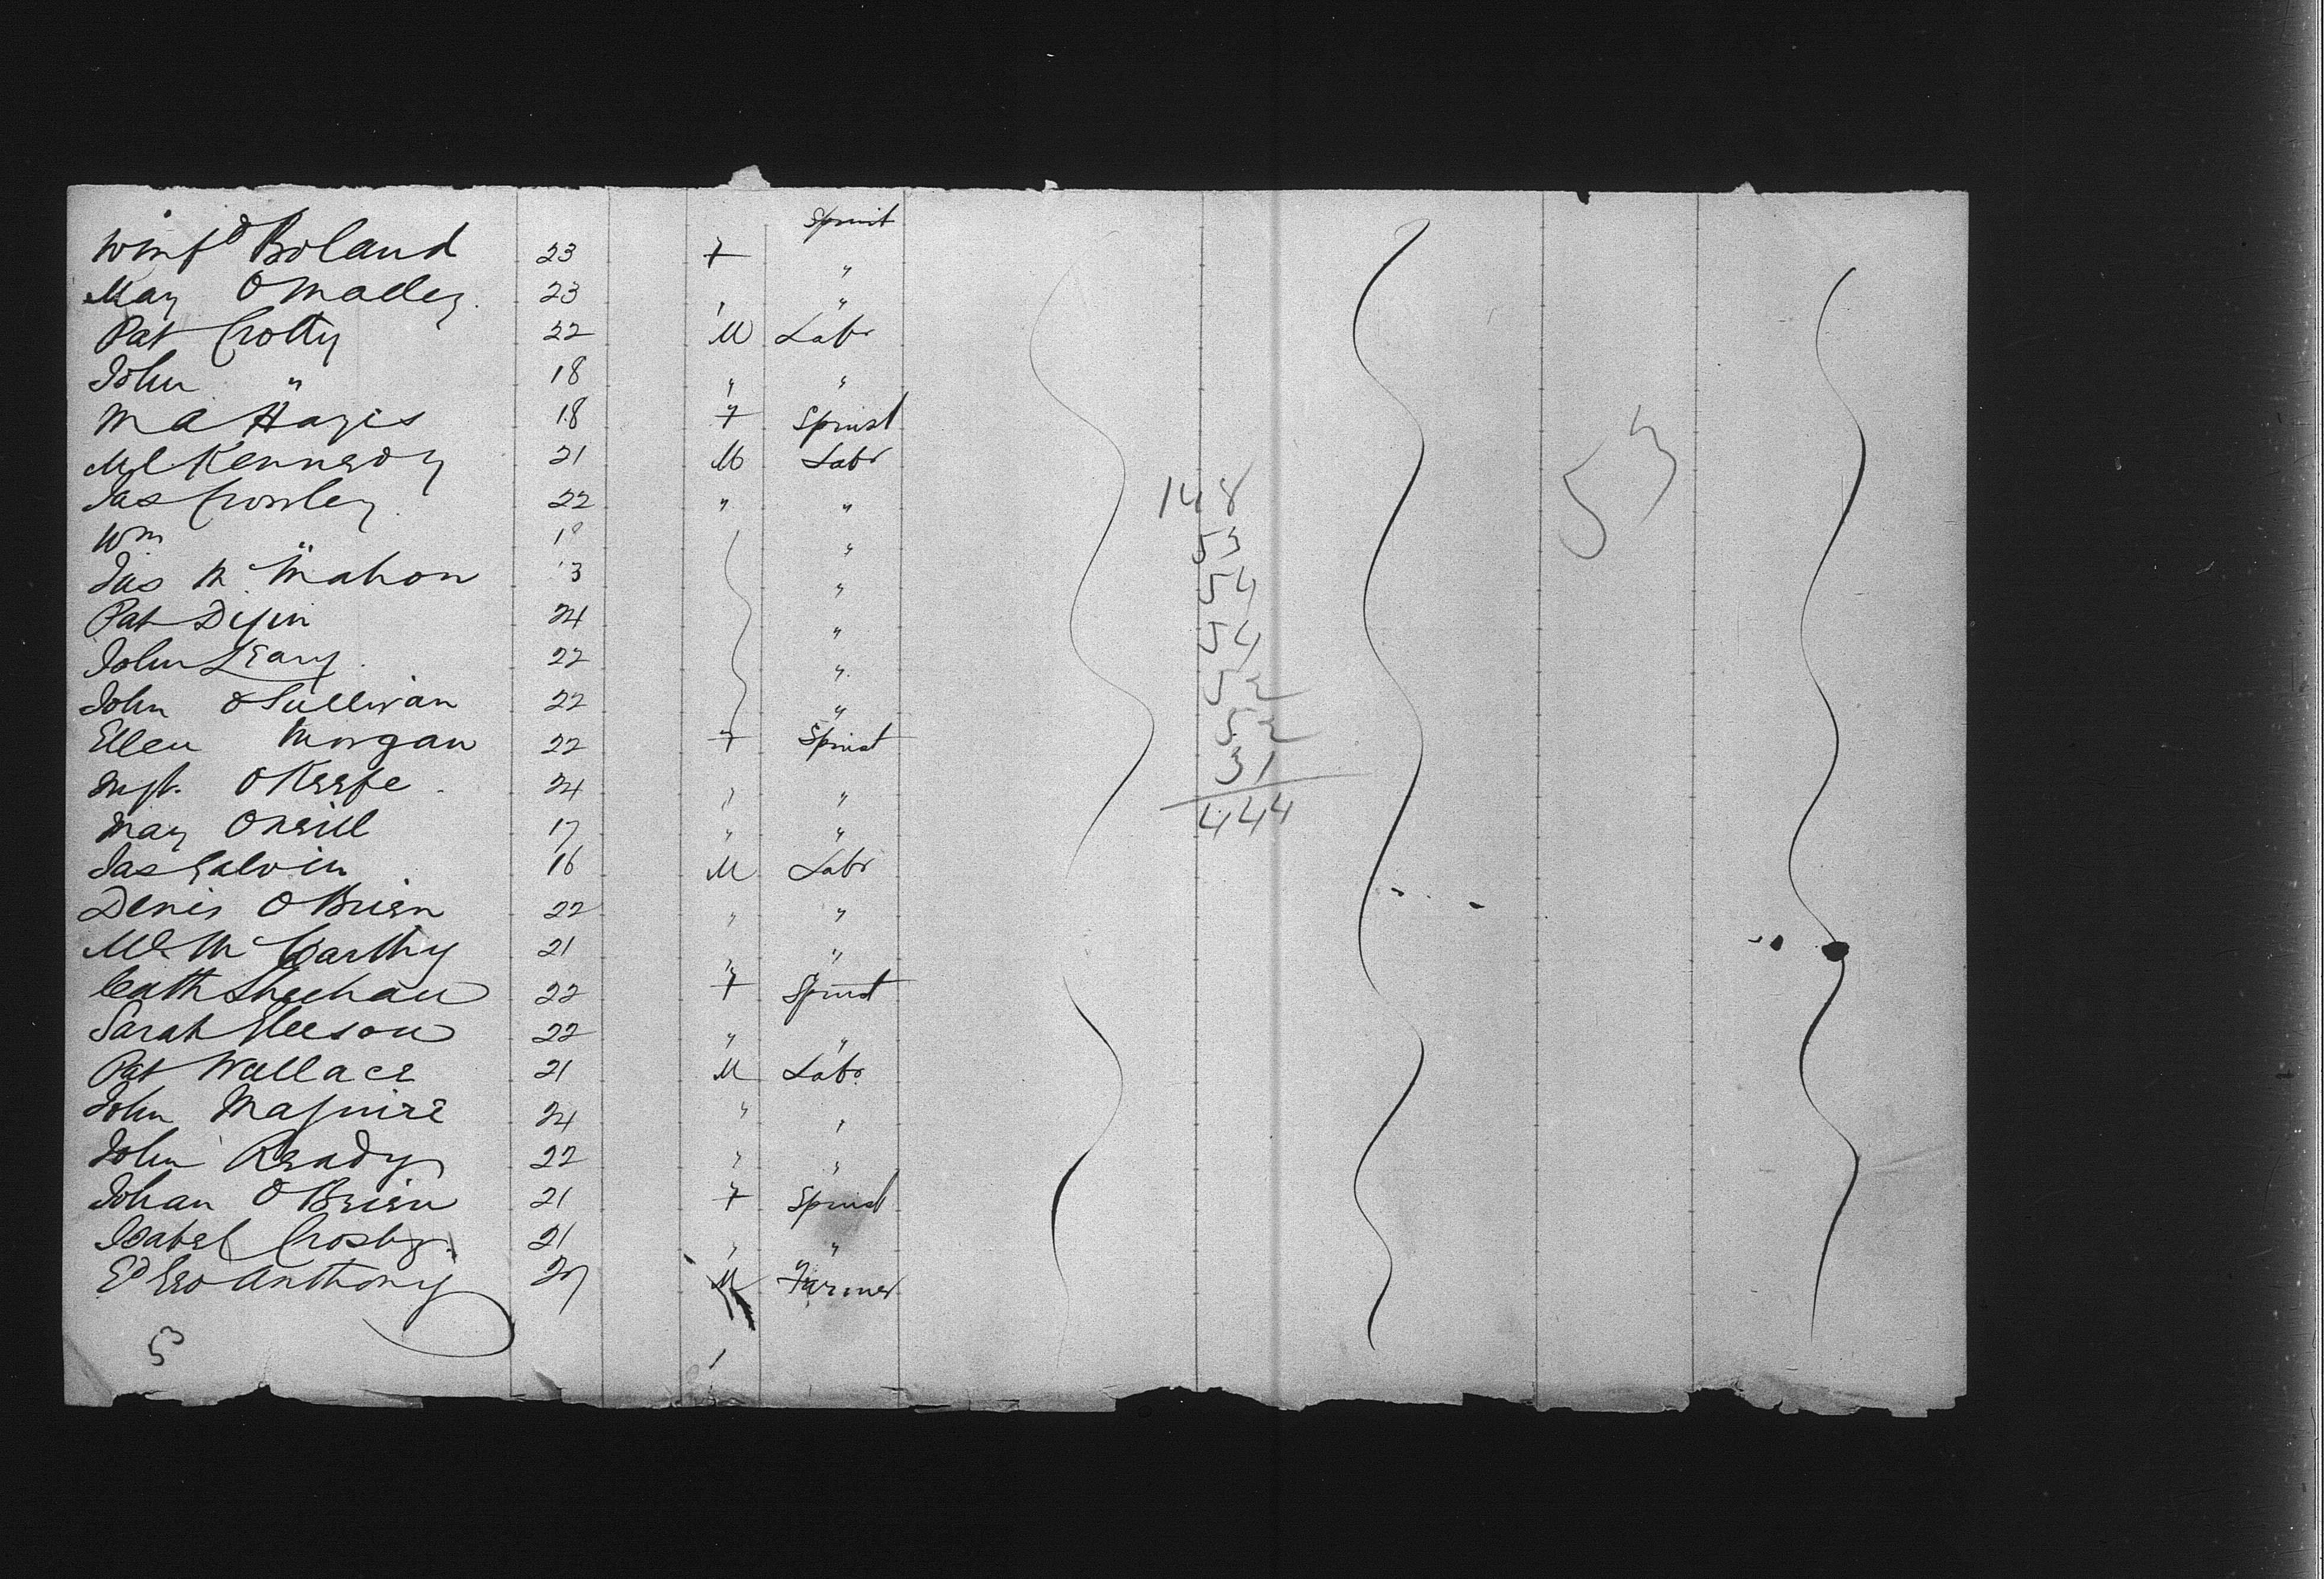 Sprinst
Winfd Boland 23 F "
Mary O Malley 23 " "
Pat Crotty 22 M Labr
John " 18 " "
M A Hayes 18 F Sprinst
Ml Kennedy 21 M Labr
Jas Crowley 22 " "
Wm " 18 "
Jas Mc Mahon 3 "
Pat 24 "
John Leary 22 "
John O Sullivan 22 "
Ellen Morgan 22 F Sprinst
Mgt. O Keefe 24 " "
Mary O Neill 17 " "
Jas Galvin 16 M Labr
Denis O Brien 22 " "
Ml Mc Carthy 21 " "
Cath Sheehan 22 F Sprinst
Sarah Gleeson 22 " "
Pat Wallace 21 M Labr
John Maguire 24 " "
John Ready 22 " "
Johan O Brien 21 F Sprinst
Isabel Crosby 21 " "
Ed Geo Anthony 27 M Farmer
53
148
53
54
54
52
52
31
444
53